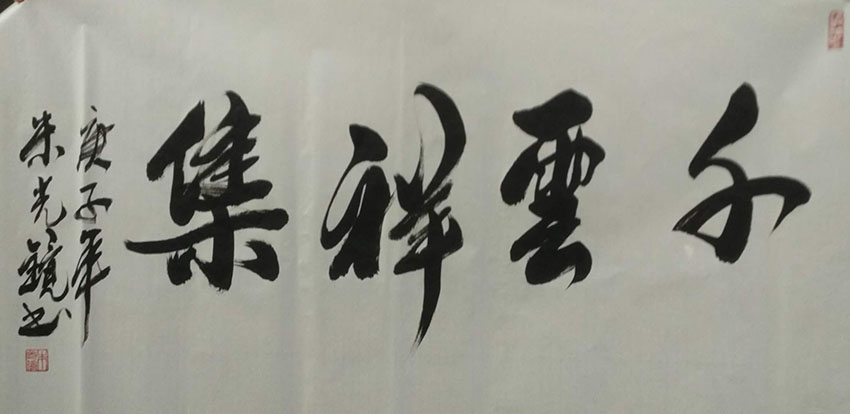 千雲祥集
庚子年
朱光鏡书